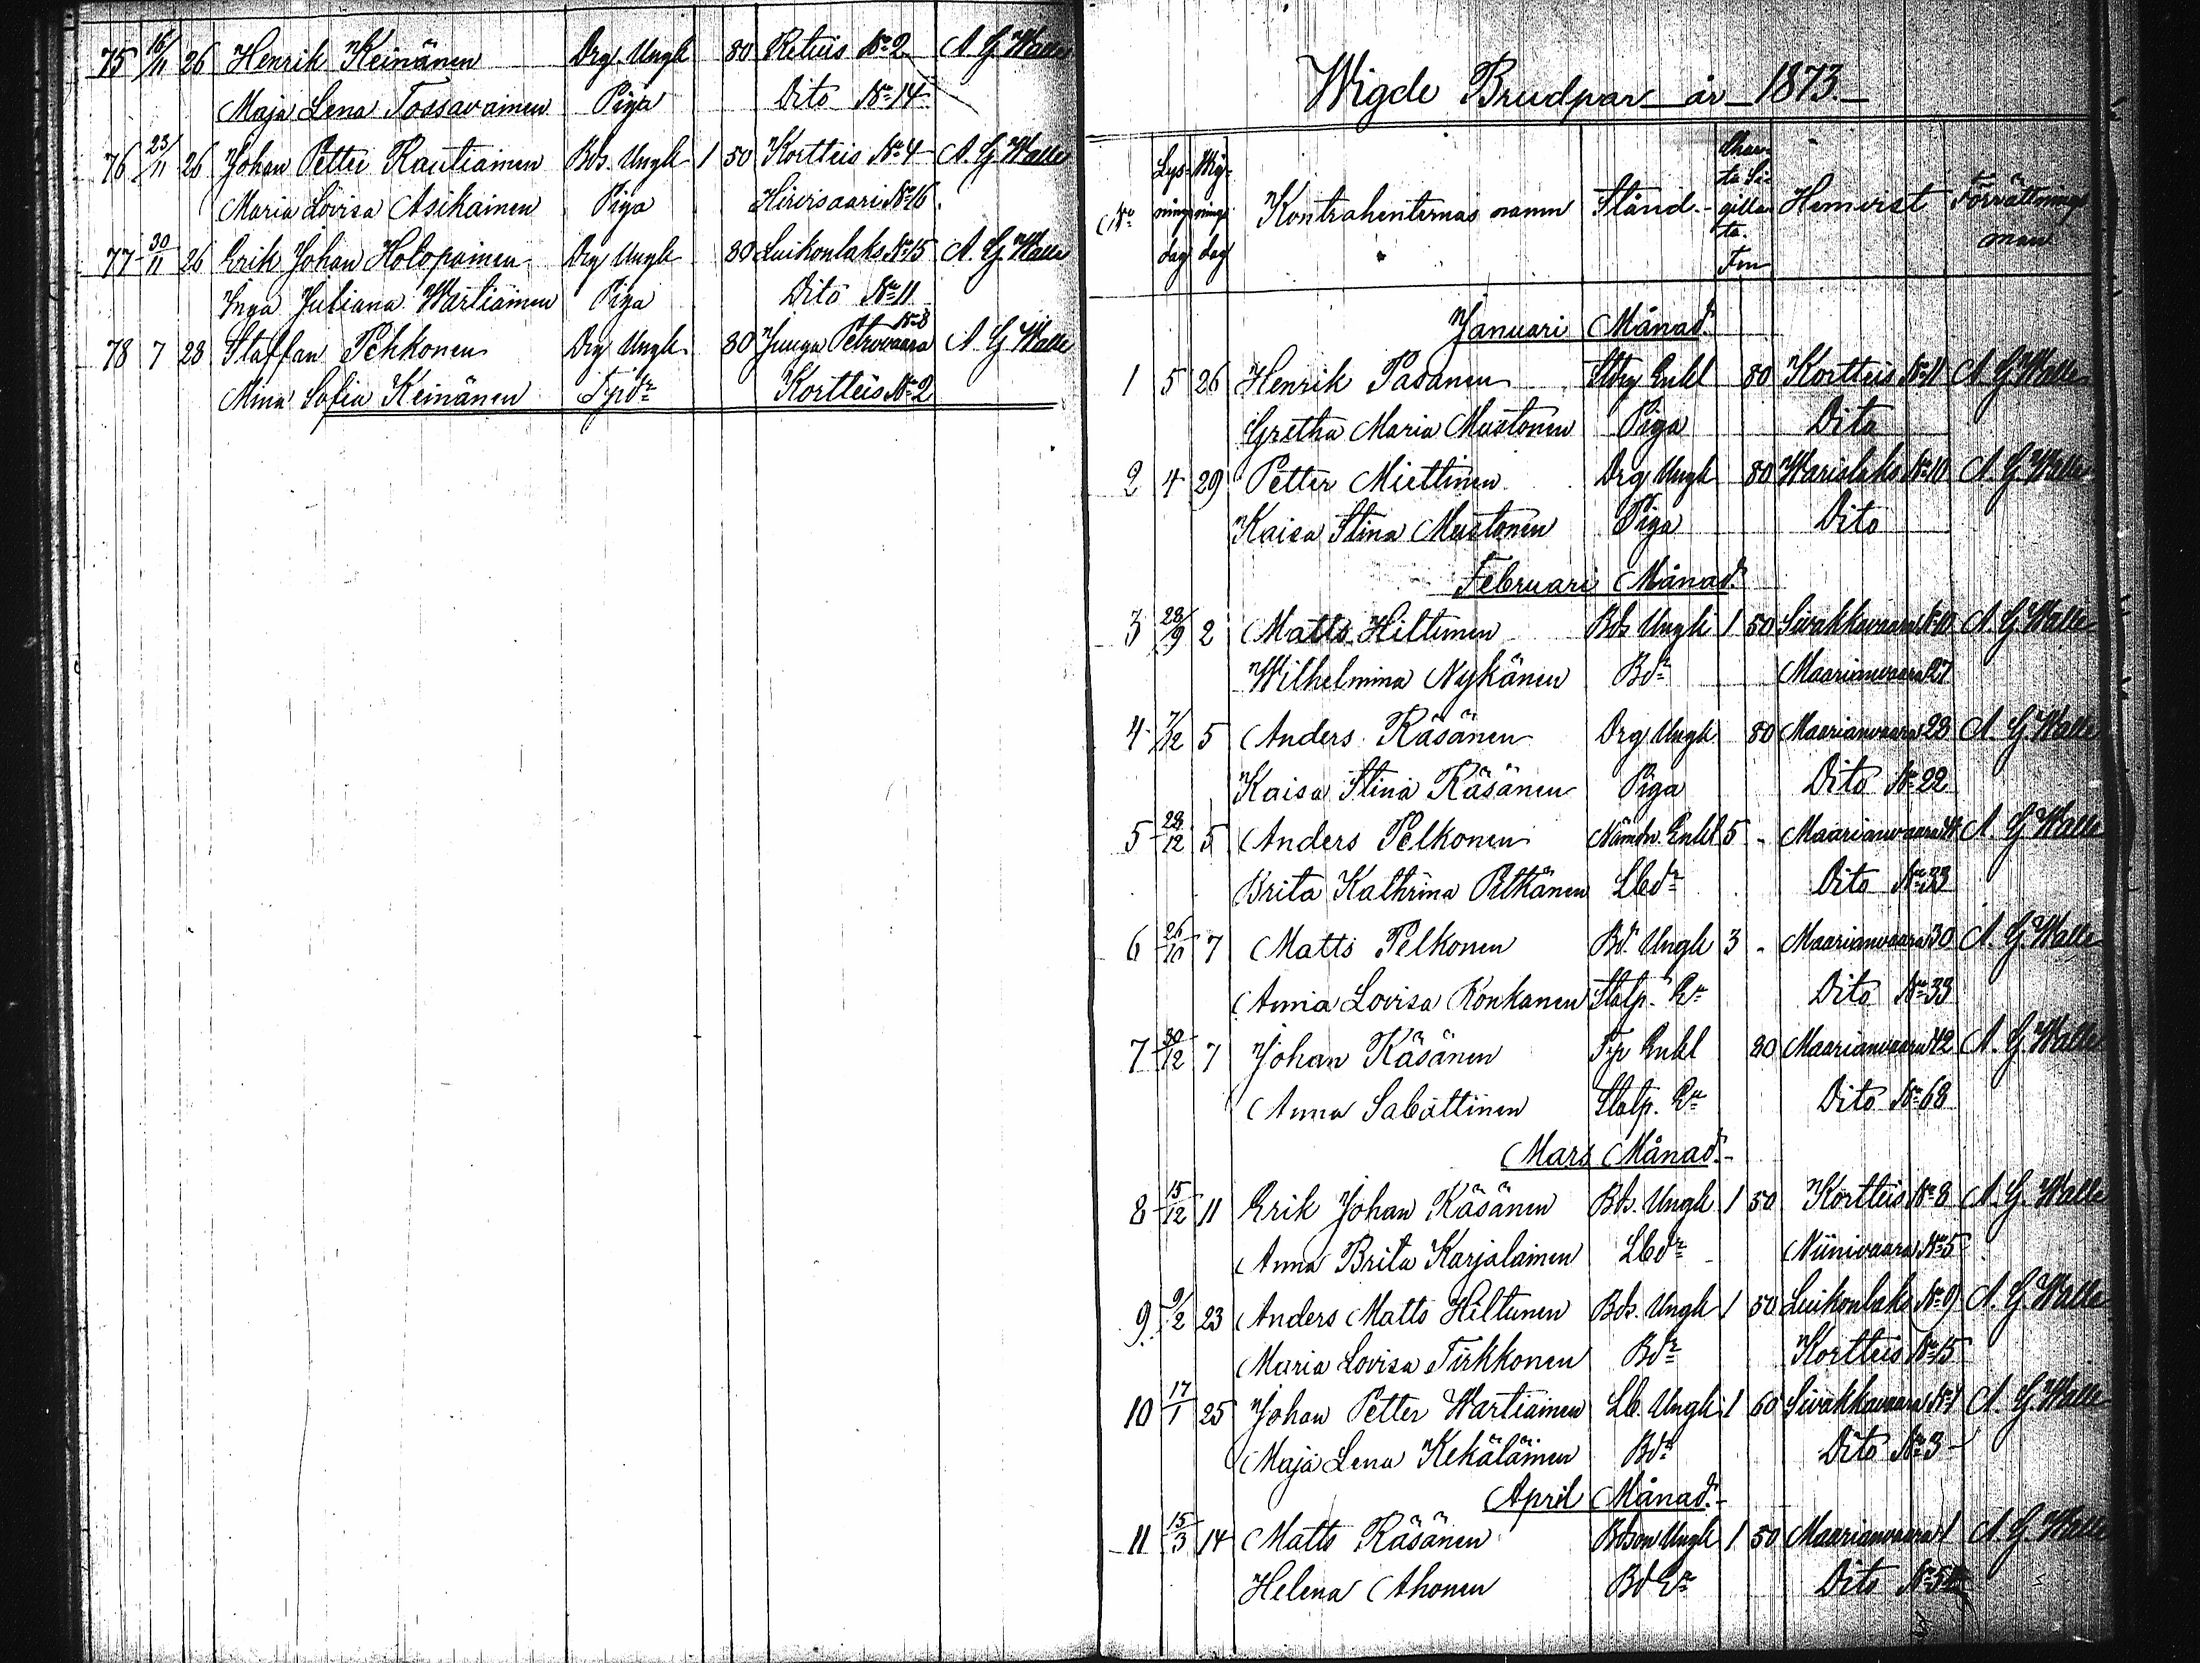 75 16/11 26 Henrik Keinänen Drg. Ungk 80 Retuis No 2 A G Walle
Maja Lena Tossavainen Piga Dito No 14
76 23/11 26 Johan Petter Rautiainen Bds. Ungk 1 50 Kortteis No 4 A. G. Walle
Maria Lovisa Asikainen Piga Hirvisaari No 16
77 30/11 26 Erik Johan Holopainen Drg Ungk 80 Luikonlaks No 15 A. G. Walle
Inga Juliana Wartiainen Piga Dito No 11
78 7 28 Staffan Pehkonen Drg Ungk 80 Juuga Petrovaara No 8 A G Walle
Mina Sofia Keinänen Tjrdr Kortteis No 2
Wigde Brudpar år 1873.
No Lysningsdag Wigningsdag Kontrahenternas namn Stånd Charta Sigillata. Fm Hemvist Förrättningsman
Januari Månad.
1 5 26 Henrik Pasanen Enkl 80 Kortteis No 11 A G Walle
Gretha Maria Mustonen Piga Dito
2 4 29 Petter Miettinen Drg Ungk 80 Warislaks No 10 A. G. Walle
Kaisa Stina Mustonen Piga Dito
Februari Månad.
3 28/9 2 Matts Hiltunen Bds Ungk 1 50 Sivakkavaara No 10 A. G. Walle
Wilhelmina Nykänen Bdr Maarianvaara 27
4 7/12 5 Anders Räsänen Drg Ungk 80 Maarianvaara 28 A. G. Walle
Kaisa Stina Räsänen Piga Dito No 22
5 28/12 5 Anders Pelkonen Nämdn. Enkl 5 - Maarianvaara A G Walle
Brita Kathrina Pitkänen Lbdr Dito No 33
6 26/10 7 Matts Pelkonen Bd. Ungk 3 - Maarianvaara 30 A. G. Walle
Anna Lovisa Konkanen Statp. Er Dito No 33
7 30/12 7 Johan Räsänen Enkl 80 Maarianvaara 42 A. G. Walle
Anna Sabattinen Statp. Er Dito No 68
Mars Månad.
8 15/12 11 Erik Johan Räsänen Bds. Ungk 1 50 Kortteis No 8 A. G. Walle
Anna Brita Karjalainen Lbdr Niinivaara No 5
9 9/2 23 Anders Matts Hiltunen Bds. Ungk 1 50 Luikonlaks No 9 A. G. Walle
Maria Lovisa Tirkkonen Bdr Kortteis No 15
10 17/1 25 Johan Petter Wartiainen Lb. Ungk 1 60 Sivakkavaara A. G. Walle
Maja Lena Kekäläinen Bdr Dito No 3
April Månad.
11 15/3 14 Matts Räsänen Bdson Ungk 1 50 Maarianvaara 1 A. G. Walle
Helena Ahonen Bd Er Dito